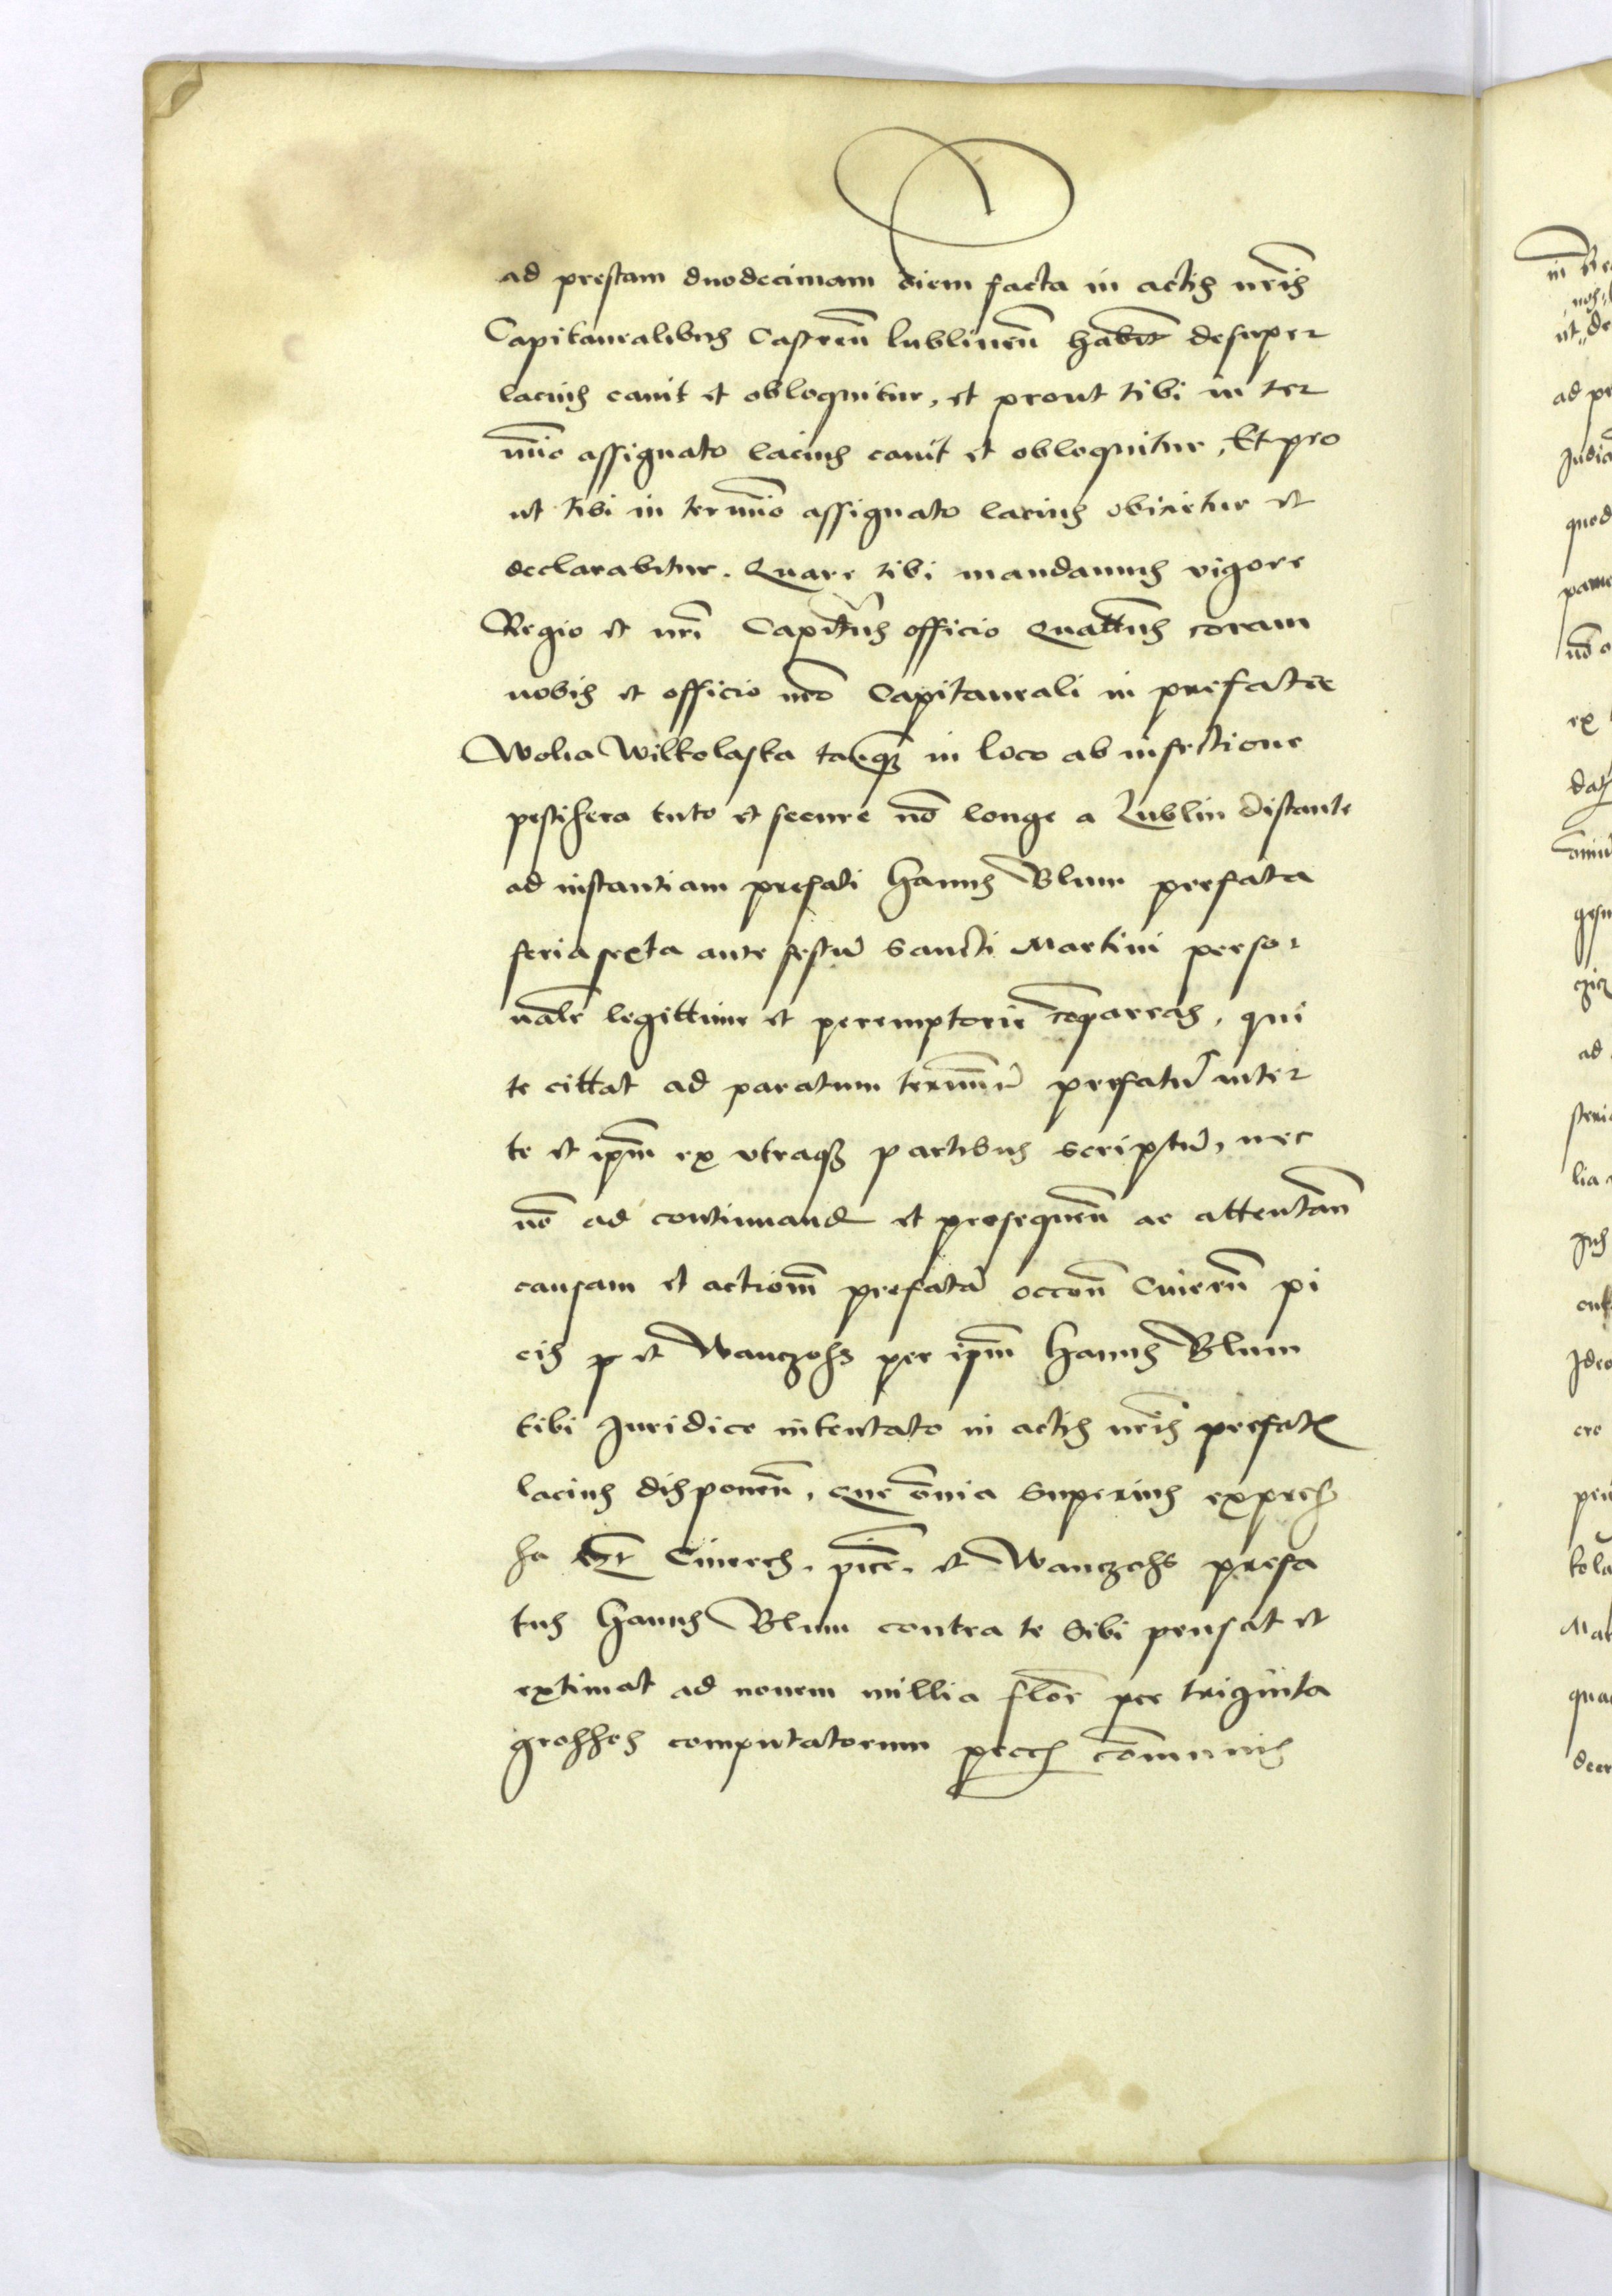 ad prestam duodecimam diem facta in actis nr̃is
Capitanealibus Castreñ lublineñ habēt desuper
lacius canit et obloquitur, et prout tibi in ter
mīo assignato lacius canit et obloquitur, Et pro
ut tibi in termīo assignato lacius obicietur et
declarabitur. Quare tibi mandamus vigore
Regio et nr̃i Capit̃us officio Quatt̃us coram
nobis et officio nr̃o Capitaneali in prefatee
Wolia Wilkolaska tanq̃ in loco ab infectione
pestifera tuto et secure nō longe a Lublin distante
ad instantiam prefati Hanus Blum prefata
feria sexta ante festū Sancti Martini perso
nalr̃ legittime et peremptorie cōpareas, qui
te cittat ad paratum termīū prefatū inter
te et ip̄m ex vtraq3 partibus scriptū, nec
nō ad continuand et prosequeñ ac attentañ
causam et actionm̄ prefatā occoñ Cinerũ pi
cis p et Wanczoss per ip̄m Hanus Blum
tibi Iuridice intentato in actis nr̃is prefat
lacius disponeñ, que ōnia superius express
sa Cinerẽs, picẽ, et Wanczoss prefa
tus Hanus Blum contra te sibi pensat et
extimat ad nouem millia flor̃ per triginta
grosses computatorum pecc̃ cōmunis
in
ad pe
quod
ex
ad
lia
Ideo